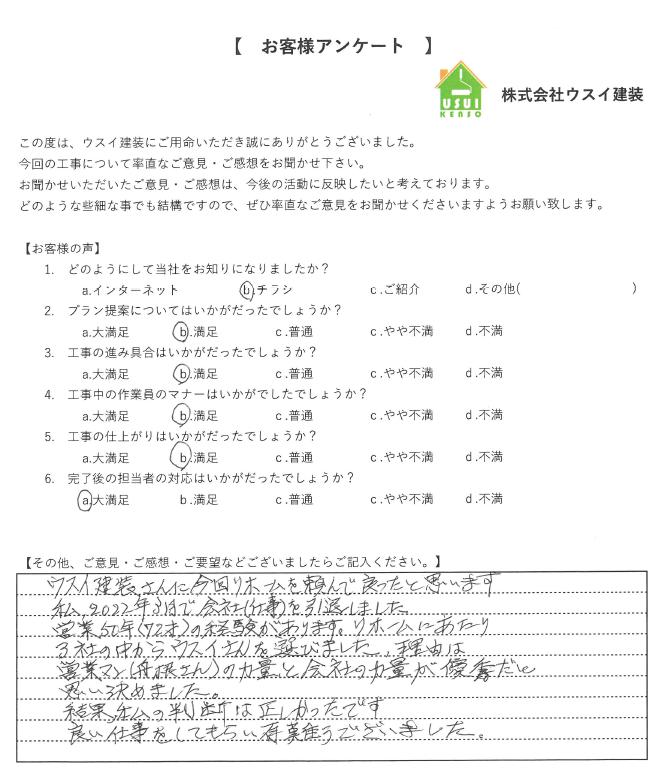 【 お客様アンケート 】
USUI
KENSO
株式会社ウスイ建装
この度は、ウスイ建装にご用命いただき誠にありがとうございました。
今回の工事について率直なご意見・ご感想をお聞かせ下さい。
お聞かせいただいたご意見・ご感想は、今後の活動に反映したいと考えております。
どのような些細な事でも結構ですので、ぜひ率直なご意見をお聞かせくださいますようお願い致します。
【お客様の声】
1. どのようにして当社をお知りになりましたか？
a.インターネット b.チラシ c.ご紹介 d.その他( )
2. プラン提案についてはいかがだったでしょうか？
a.大満足 b.満足 c.普通 c.やや不満 d.不満
3. 工事の進み具合はいかがだったでしょうか？
a.大満足 b.満足 c.普通 c.やや不満 d.不満
4. 工事中の作業員のマナーはいかがでしたでしょうか？
a.大満足 b.満足 c.普通 c.やや不満 d.不満
5. 工事の仕上がりはいかがだったでしょうか？
a.大満足 b.満足 c.普通 c.やや不満 d.不満
6. 完了後の担当者の対応はいかがだったでしょうか？
a.大満足 b.満足 c.普通 c.やや不満 d.不満
【その他、ご意見・ご感想・ご要望などございましたらご記入ください。】
ウスイ建装さんに今回リホームを頼んで良ったと思います
私、2022年3月で会社(仕事)を引退しました
営業50年(72才)の経験があります。リホームにあたり
3社の中からウスイさんを選びました、理由は
営業マン(さん)の力量と会社の力量が優秀だと
思い決めました。
結果私の判断は正しかったです
良い仕事をしてもらい有難うございました。